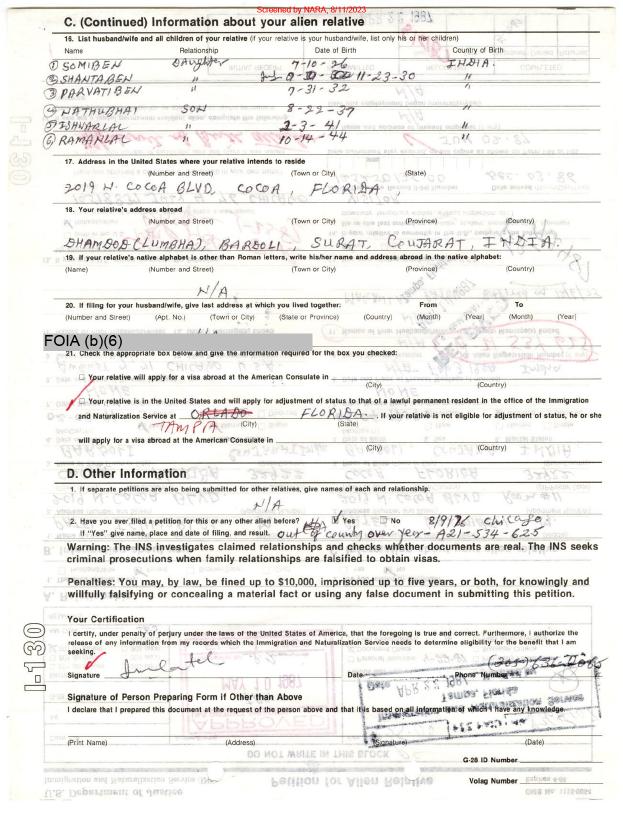 Screened by NARA, 8/11/2023
C. (Continued) Information about your alien relative
16. List husband/wife and all children of your relative (if your relative is your husband/wife, list only his or her children)
Name Relationship Date of Birth Country of Birth
① SOMIBEN Daughter 7-10-26 INDIA.
② SHANTABEN " 11-23-30 "
③ PARVATIBEN " 7-31-32 "
④ NATHUBHAI SON 8-22-37 "
⑤ ISHVARLAL " 2-3-41 "
⑥ RAMANLAL " 10-14-44 "
17. Address in the United States where your relative intends to reside
(Number and Street) (Town or City) (State)
2019 N. COCOA BLVD, COCOA, FLORIDA,
18. Your relative's address abroad
(Number and Street) (Town or City) (Province) (Country)
DHAMDOD (LUMBHA), BARDOLI, SURAT, GUJARAT, INDIA.
19. If your relative's native alphabet is other than Roman letters, write his/her name and address abroad in the native alphabet:
(Name) (Number and Street) (Town or City) (Province) (Country)
N/A
20. If filing for your husband/wife, give last address at which you lived together: From To
(Number and Street) (Apt. No.) (Town or City) (State or Province) (Country) (Month) (Year) (Month) (Year)
FOIA (b)(6)
21. Check the appropriate box below and give the information required for the box you checked:
☐ Your relative will apply for a visa abroad at the American Consulate in
(City) (Country)
☐ Your relative is in the United States and will apply for adjustment of status to that of a lawful permanent resident in the office of the Immigration
and Naturalization Service at ORLADO FLORIDA. . If your relative is not eligible for adjustment of status, he or she
TAMPA (City) (State)
will apply for a visa abroad at the American Consulate in
(City) (Country)
D. Other Information
1. If separate petitions are also being submitted for other relatives, give names of each and relationship.
N/A
2. Have you ever filed a petition for this or any other alien before? ☑ Yes ☐ No 8/9/76 Chicago
If "Yes" give name, place and date of filing, and result. out of country over year - A21-534-625
Warning: The INS investigates claimed relationships and checks whether documents are real. The INS seeks
criminal prosecutions when family relationships are falsified to obtain visas.
Penalties: You may, by law, be fined up to $10,000, imprisoned up to five years, or both, for knowingly and
willfully falsifying or concealing a material fact or using any false document in submitting this petition.
Your Certification
I certify, under penalty of perjury under the laws of the United States of America, that the foregoing is true and correct. Furthermore, I authorize the
release of any information from my records which the Immigration and Naturalization Service needs to determine eligibility for the benefit that I am
seeking.
Signature Date Phone Number
Signature of Person Preparing Form if Other than Above
I declare that I prepared this document at the request of the person above and that it is based on all information of which I have any knowledge.
(Print Name) (Address) (Signature) (Date)
G-28 ID Number
Volag Number
I-130